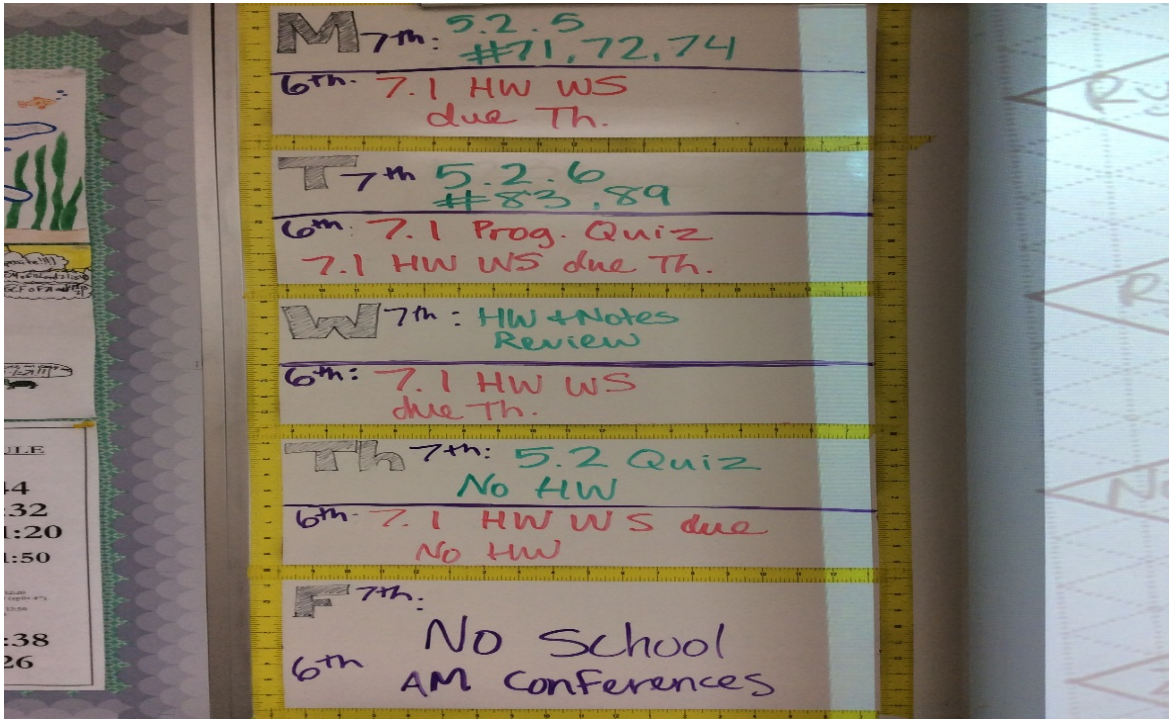 M 7th: 5.2.5
#71, 72, 74
6th. 7.1 HW WS
due Th.
T 7th 5.2.6
#83, 89
6th: 7.1 Prog. Quiz
7.1 HW WS due Th.
W 7th: HW + Notes
Review
6th: 7.1 HW WS
due Th.
Th 7th: 5.2 Quiz
No HW
6th. 7.1 HW WS due
No HW
F 7th:
No School
6th AM Conferences
:32
1:20
1:50
:38
26